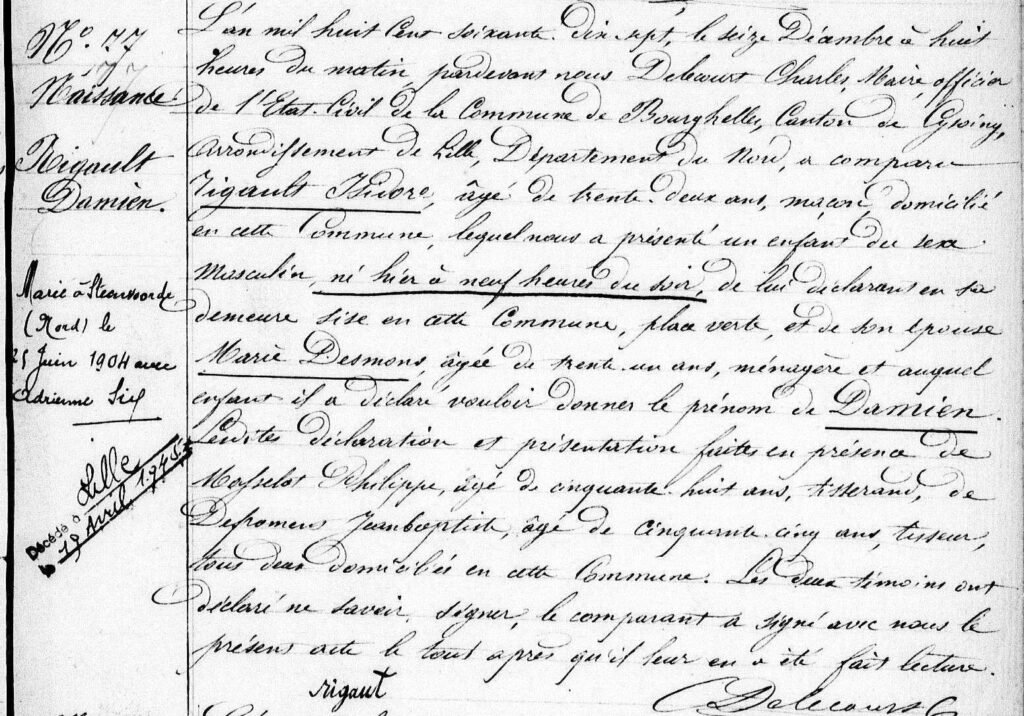 N°. 77
Naissance
Rigault
Damien.
Marié à Steenvoorde
(Nord) le
25 Juin 1904 avec
Adrienne
Décédé à Lille
le 19 Avril 1945
L'an mil huit Cent soixante dix sept, le seize Décembre à huit
heures du matin, pardevant nous Delcourt Charles, Maire, officier
de l'Etat Civil de la Commune de Bourghelles, Canton de Cysoing,
Arrondissement de Lille, Département du Nord, a comparu
Rigault Isidore, âgé de trente-deux ans, maçon, domicilié
en cette Commune, lequel nous a présenté un enfant du sexe
Masculin, né hier à neuf heures du soir, de lui déclarant en sa
demeure sise en cette Commune, place verte, et de son épouse
Marie Desmons, âgée de trente-un ans, ménagère et auquel
enfant il a déclaré vouloir donner le prénom de Damien.
Lesdites déclaration et présentation faites en présence de
Masselot Philippe, âgé de cinquante-huit ans, tisserand, de
Jeanbaptiste, âgé de cinquante-cinq ans, tisseur,
tous deux domiciliés en cette Commune. Les deux témoins ont
déclaré ne savoir signer, le comparant a signé avec nous le
présent acte le tout après qu'il leur en a été fait lecture.
rigaut
Delcourt C